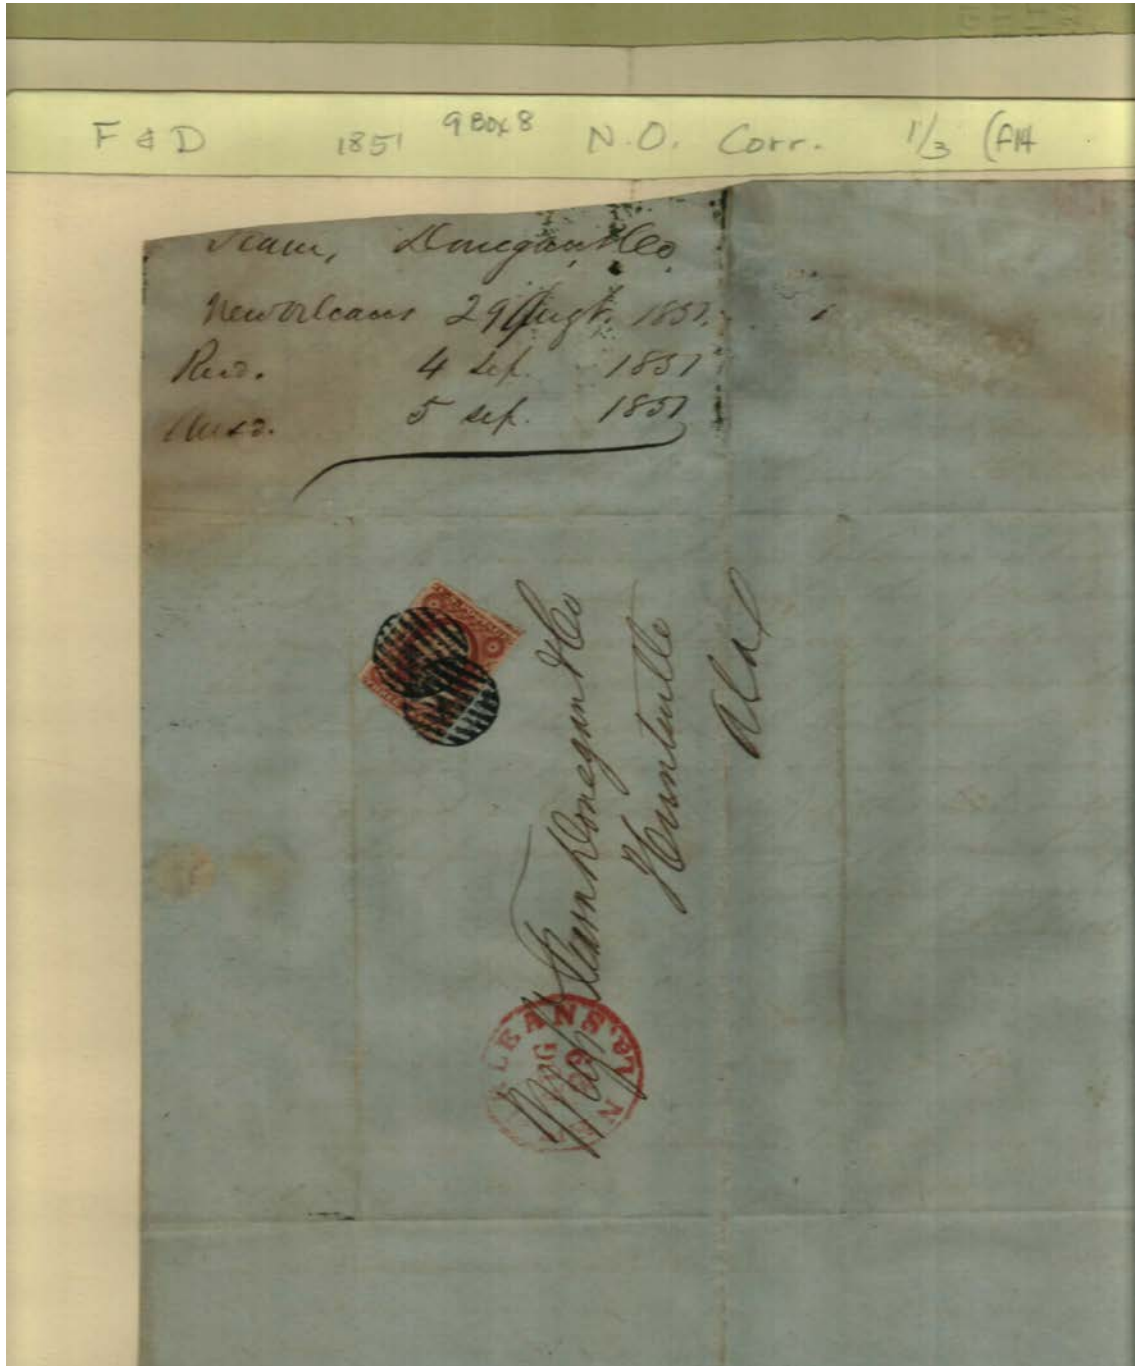 F & D 1851 9 Box 8 N.O. Corr. 1/3 (AH
Fearn, Donegan & Co
New Orleans 29 Augt. 1851.
Recd. 4 Sep. 1851
Ansd. 5 Sep. 1851
Fearn Donegan & Co
Huntsville
Ala
LEANS. La.